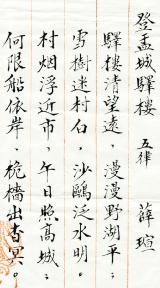 登盂城驛樓 五律 薛瑄
驛樓清望遠，漫漫野湖平；
雪樹迷村白，沙鷗泛水明。
村烟浮近市，午日照高城；
何限船依岸，桅檣出杳冥。